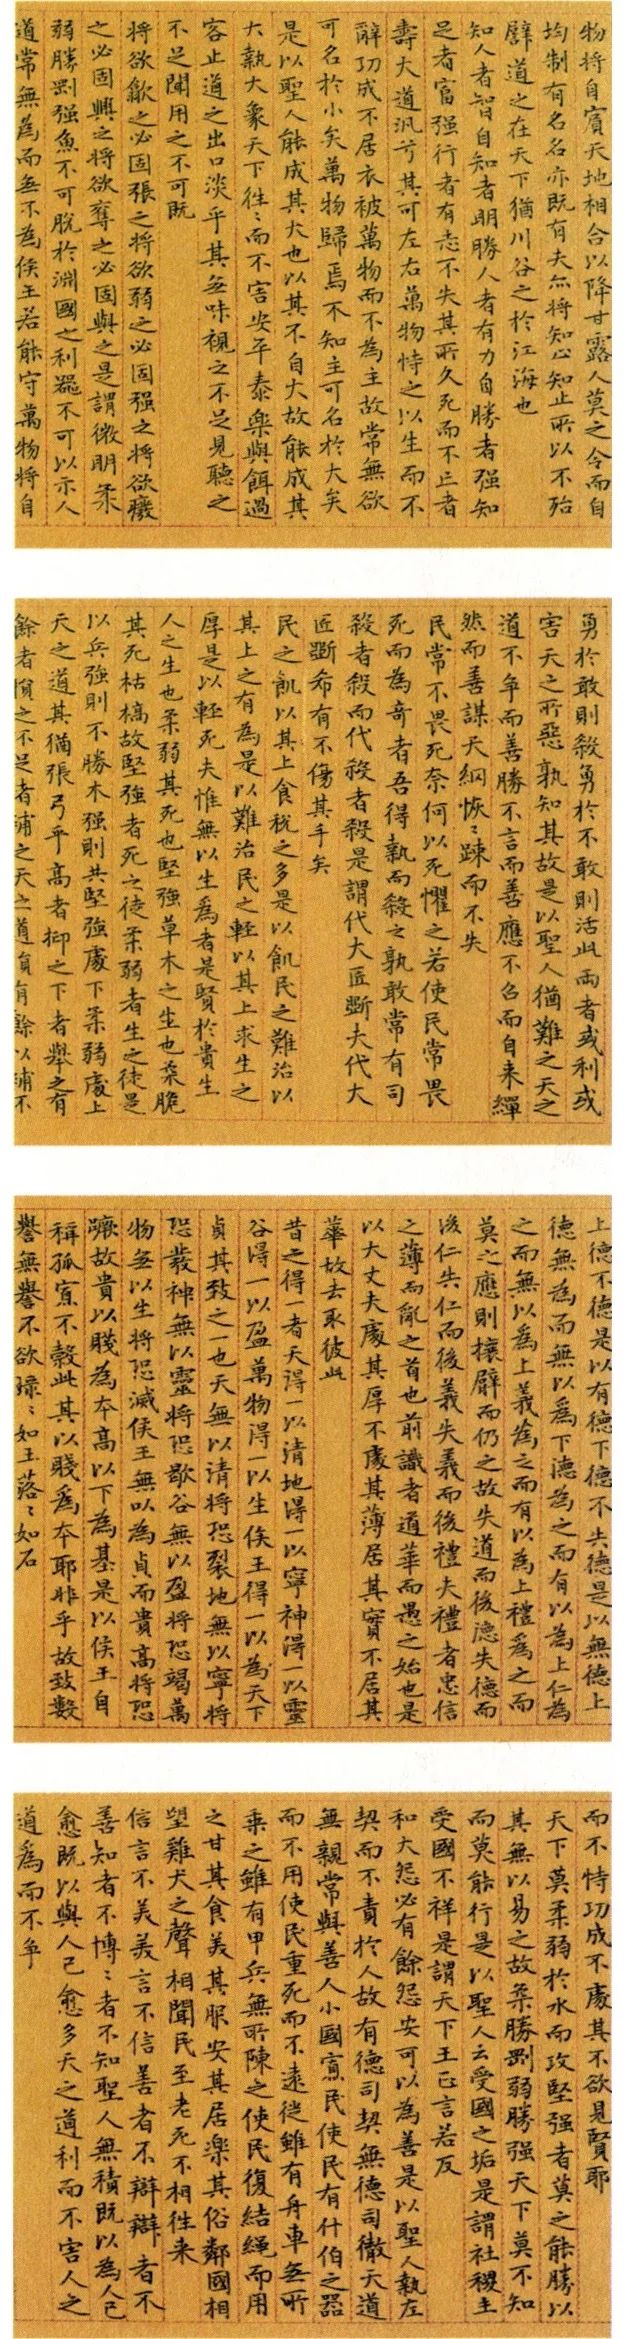 物將自賓天地相合以降甘露人莫之令而自
均制有名名亦既有夫亦將知止知止所以不殆
譬道之在天下猶川谷之於江海也
知人者智自知者明勝人者有力自勝者强知
足者富强行者有志不失其所久死而不亡者
壽大道汎兮其可左右萬物恃之以生而不
辭功成不居衣被萬物而不為主故常無欲
可名於小矣萬物歸焉不知主可名於大矣
是以聖人能成其大也以其不自大故能成其
大執大象天下往〻而不害安平泰樂與餌過
客止道之出口淡乎其無味視之不足見聽之
不足聞用之不可既
將欲歙之必固張之將欲弱之必固强之將欲癈
之必固興之將欲奪之必固與之是謂微明柔
弱勝剛强魚不可脫於淵國之利器不可以示人
道常無為而無不為侯王若能守萬物將自
勇於敢則殺勇於不敢則活此兩者或利或
害天之所惡孰知其故是以聖人猶難之天之
道不爭而善勝不言而善應不召而自来繟
然而善謀天網恢〻踈而不失
民常不畏死奈何以死懼之若使民常畏
死而為奇者吾得執而殺之孰敢常有司
殺者殺而代殺者殺是謂代大匠斲夫代大
匠斲希有不傷其手矣
民之飢以其上食稅之多是以飢民之難治以
其上之有為是以難治民之輕以其上求生之
厚是以輕死夫惟無以生為者是賢於貴生
人之生也柔弱其死也堅強草木之生也柔脆
其死枯槁故堅強者死之徒柔弱者生之徒是
以兵強則不勝木强則共堅強處下柔弱處上
天之道其猶張弓乎高者抑之下者舉之有
餘者損之不足者補之天之道損有餘以補不
上德不德是以有德下德不失德是以無德上
德無為而無以為下德為之而有以為上仁為
之而無以為上義為之而有以為上禮為之而
莫之應則攘臂而仍之故失道而後德失德而
後仁失仁而後義失義而後禮夫禮者忠信
之薄而亂之首也前識者道華而愚之始也是
以大丈夫處其厚不處其薄居其實不居其
華故去取彼此
昔之得一者天得一以清地得一以寧神得一以靈
谷得一以盈萬物得一以生侯王得一以為天下
貞其致之一也天無以清將恐裂地無以寧將
恐發神無以靈將恐歇谷無以盈將恐竭萬
物無以生將恐滅侯王無以為貞而貴高將恐
蹶故貴以賤為本高以下為基是以侯王自
稱孤寡不穀此其以賤為本耶非乎故致數
譽無譽不欲琭〻如玉落〻如石
而不恃功成不處其不欲見賢耶
天下莫柔弱於水而攻堅强者莫之能勝以
其無以易之故柔勝剛弱勝强天下莫不知
而莫能行是以聖人云受國之垢是謂社稷主
受國不祥是謂天下王正言若反
和大怨必有餘怨安可以為善是以聖人執左
契而不責於人故有德司契無德司徹天道
無親常與善人小國寡民使民有什伯之器
而不用使民重死而不遠徙雖有舟車無所
乘之雖有甲兵無所陳之使民復結繩而用
之甘其食美其服安其居樂其俗鄰國相
望雞犬之聲相聞民至老死不相往来
信言不美美言不信善者不辯辯者不
善知者不博〻者不知聖人無積既以為人己
愈既以與人己愈多天之道利而不害人之
道為而不爭